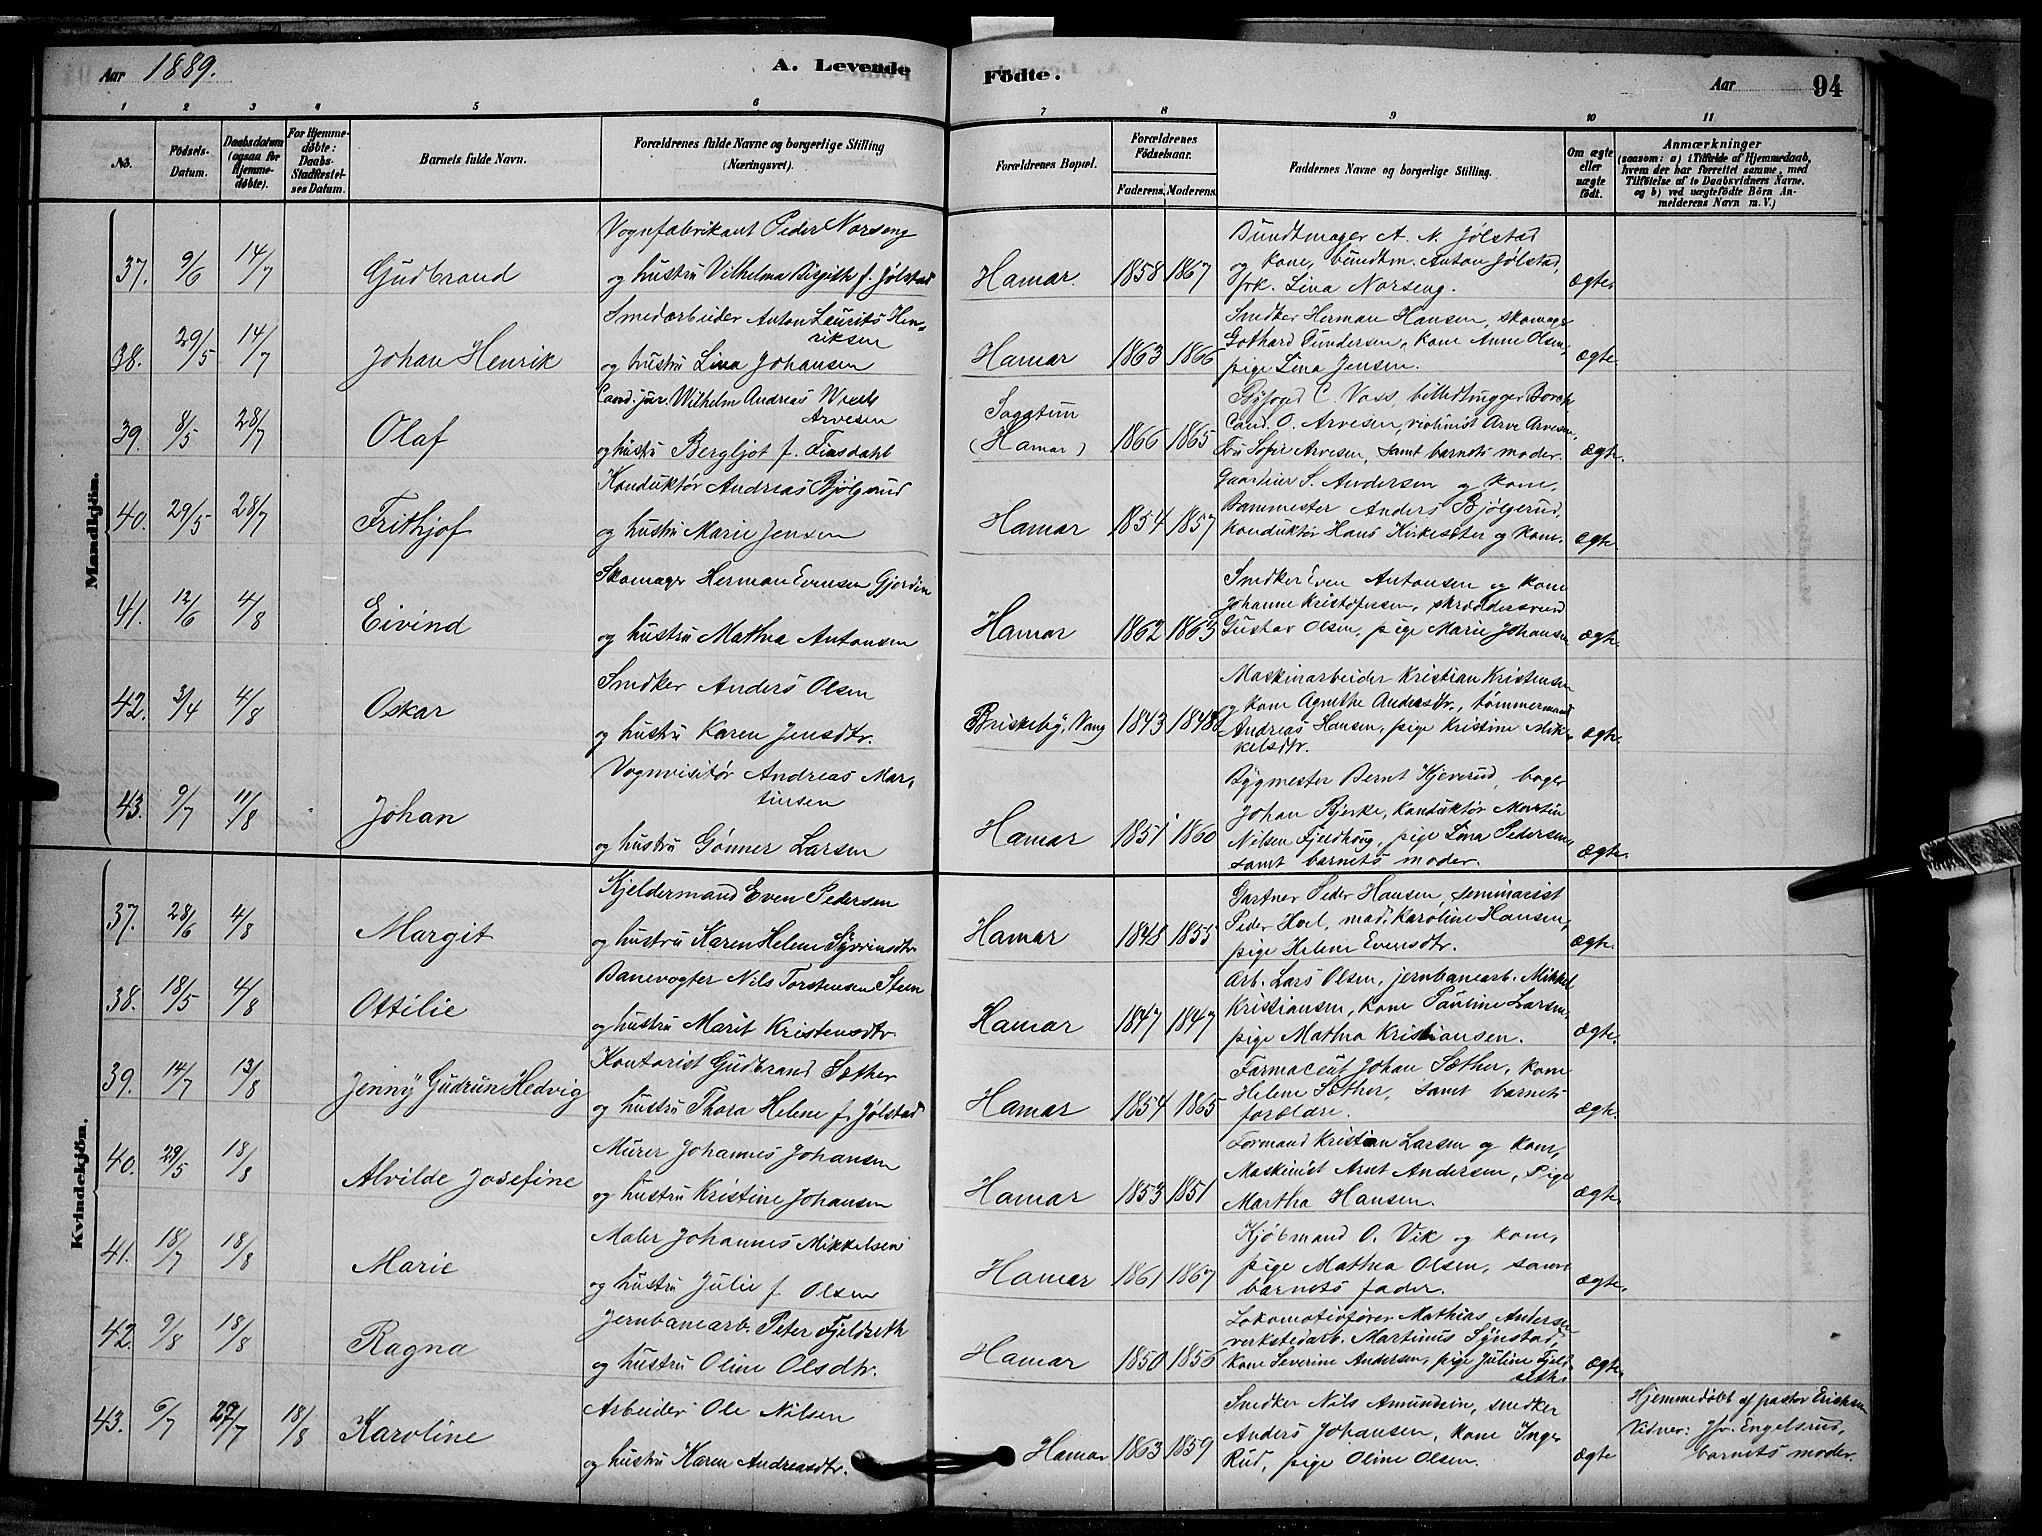 Aar 1889.
A. Levende
Födte.
Aar
94
1 2 3 4 5 6 7 8 9 10 11
No.
Födsels-Datum.
Daabsdatum (ogsaa for Hjemmedöbte).
For Hjemmedøbte: Daabs-Stadfæstelses Datum.
Barnets fulde Navn.
Forældrenes fulde Navne og borgerlige Stilling (Næringsvei).
Forældrenes Bopæl.
Forældrenes Födselsaar.
Faderens. Moderens.
Faddernes Navne og borgerlige Stilling.
Om ægte eller uægte födt.
Anmærkninger
(saasom: a) i Tilfælde af Hjemmedaab,
hvem der har forrettet samme, med
Tilföielse af to Daabsvidners Navne,
og b) ved uægtefödte Börn An-
melderens Navn m. V.)
Mandkjön.
37. 9/6 14/7 Gudbrand
Vognfabrikant Peder Norseng
og hustru Vilhelma Birgith f. Jølstad
Hamar. 1858 1867
Bundtmager A. N. Jølstad
og kone, bundtm. Anton Jølstad,
frk. Lina Norseng.
ægte
38. 29/5 14/7 Johan Henrik
Smedarbeider Anton Laurits Hen-
riksen
og hustru Lina Johansen
Hamar 1863 1866
Snedker Herman Hansen, skomager
Gothard Gundersen, kone Anne Olsen,
pige Lina Jensen.
ægte
39. 8/5 28/7 Olaf
Cand. jur. Wilhelm Andreas Wexels
Arvesen
og hustru Bergljot f. Finsdahl
Sagatun
(Hamar) 1866 1865
Byfoged C. Voss, billedhugger Borch
Cand. O. Arvesen, violinist Arve Arvesen,
Fru Sofie Arvesen, samt barnets moder.
ægte.
40. 29/5 28/7 Frithjof
Konduktør Andreas Bjølgerud
og hustru Marie Jensen
Hamar 1854 1857
S. Andersen og kone,
Banmester Anders Bjølgerud,
konduktør Hans Kirkesæter og kone.
ægte.
41. 12/6 4/8 Eivind
Skomager Herman Evensen Gjerdin
og hustru Mathea Antonsen
Hamar 1862 1863
Snedker Even Antonsen og kone
Johanne Kristofersen, skræddersvend
Gustav Olsen, pige Marie Johansen
ægte.
42. 3/4 4/8 Oskar
Snedker Anders Olsen
og hustru Karen Jensdtr.
Briskeby, Vang 1843 1848
Maskinarbeider Kristian Kristensen
og kone Agnethe Andersdtr., tømmermand
Andreas Hansen, pige Kristine Mik-
kelsdtr.
ægte.
43. 9/7 11/8 Johan
Vognvisitør Andreas Mar-
tinsen
og hustru Gønner Larsen
Hamar 1851 1860
Bygmester Bernt Hjeverud, bager
Johan Bjerke, konduktør Martin
Nilsen Fjeldhoug, pige Lina Pedersen,
samt barnets moder.
ægte.
Kvindekjön.
37. 28/6 4/8 Margit
Kjeldermand Even Pedersen
og hustru Karen Helene Syverinsdtr.
Hamar 1848 1855
Gartner Peder Hansen, seminarist
Peder Hoel, mad. Karoline Hansen,
pige Helene Evensdtr.
ægte.
38. 18/5 4/8 Ottilie
Banevogter Nils Torstensen Steen
og hustru Marit Kristensdtr.
Hamar 1847 1847
Arb. Lars Olsen, jernbanearb. Mikkel
Kristiansen, kone Pauline Larsen,
pige Mathea Kristiansen.
ægte.
39. 14/7 13/8 Jenny Gudrun Hedvig
Kontorist Gudbrand Sæther
og hustru Thora Helene f. Jølstad
Hamar 1854 1865
Farmaceut Johan Sæther, kone
Helene Sæther, samt barnets
forældre.
ægte.
40. 29/5 18/8 Alvilde Josefine
Murer Johannes Johansen
og hustru Kristine Johansen
Hamar 1853 1851
Formand Kristian Larsen og kone,
Maskinist Arnt Andersen, Pige
Martha Hansen.
ægte.
41. 18/7 18/8 Marie
Maler Johannes Mikkelsen
og hustru Julie f. Olsen
Hamar 1861 1867
Kjøbmand O. Vik og kone,
pige Mathea Olsen, samt
barnets fader.
ægte.
42. 9/8 18/8 Ragna
Jernbanearb. Peter Fjeldseth
og hustru Oline Olsdtr.
Hamar 1850 1856
Lokomotivfører Mathias Andersen
verkstedarb. Martinus Synstad,
kone Severine Andersen, pige Juline Fjeld-
seth.
ægte.
43. 6/7 27/7 18/8 Karoline
Arbeider Ole Nilsen
og hustru Karen Andreasdtr.
Hamar 1863 1859
Snedker Nils Amundsen, snedker
Anders Johansen, kone Inger
Rud, pige Oline Olsen.
ægte
Hjemmedøbt af pastor Eriksen
Vidner: Jfr. Engelsrud,
barnets moder.